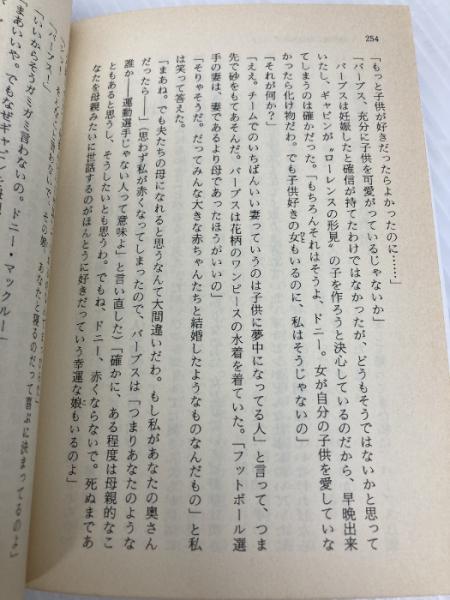 254
「もっと子供が好きだったらよかったのに……」
「バーブス、充分に子供を可愛がっているじゃないか」
バーブスは妊娠したと確信が持てたわけではなかったが、どうもそうではないかと思って
いたし、ギャビンが〝ローレンスの形見〟の子を作ろうと決心しているのだから、早晩出来
てしまうのは確かだった。「もちろんそれはそうよ、ドニー。女が自分の子供を愛していな
かったら化け物だわ。でも子供好きの女もいるのに、私はそうじゃないの」
「それが何か?」
「ええ。チームでのいちばんいい妻っていうのは子供に夢中になってる人」と言って、つま
先で砂をもてあそんだ。バーブスは花柄のワンピースの水着を着ていた。「フットボール選
手の妻は、妻であるより母であったほうがいいの」
「そりゃそうだ。だってみんな大きな赤ちゃんたちと結婚したようなものなんだもの」と私
は笑って答えた。
「まあね。でも夫たちの母になれると思うなんて大間違いだわ。もし私があなたの奥さん
だったら――」(思わず私が赤くなってしまったので、バーブスは「つまりあなたのような
誰か――運動選手じゃない人って意味よ」と言い直した)「確かに、ある程度は母親的なこ
ともあると思うし、そうしたいとも思うわ。でもね、ドニー、赤くならないで。死ぬまであ
なたを母親みたいに世話するのがほんとうに好きだっていう幸運な娘もいるのよ」
あなたと寝るのだって喜ぶに決まってるのよ」
「バーブス
「いいからそうガミガミ言わないの。ドニー・マックルー
「まあいいや。でもなぜギャビン